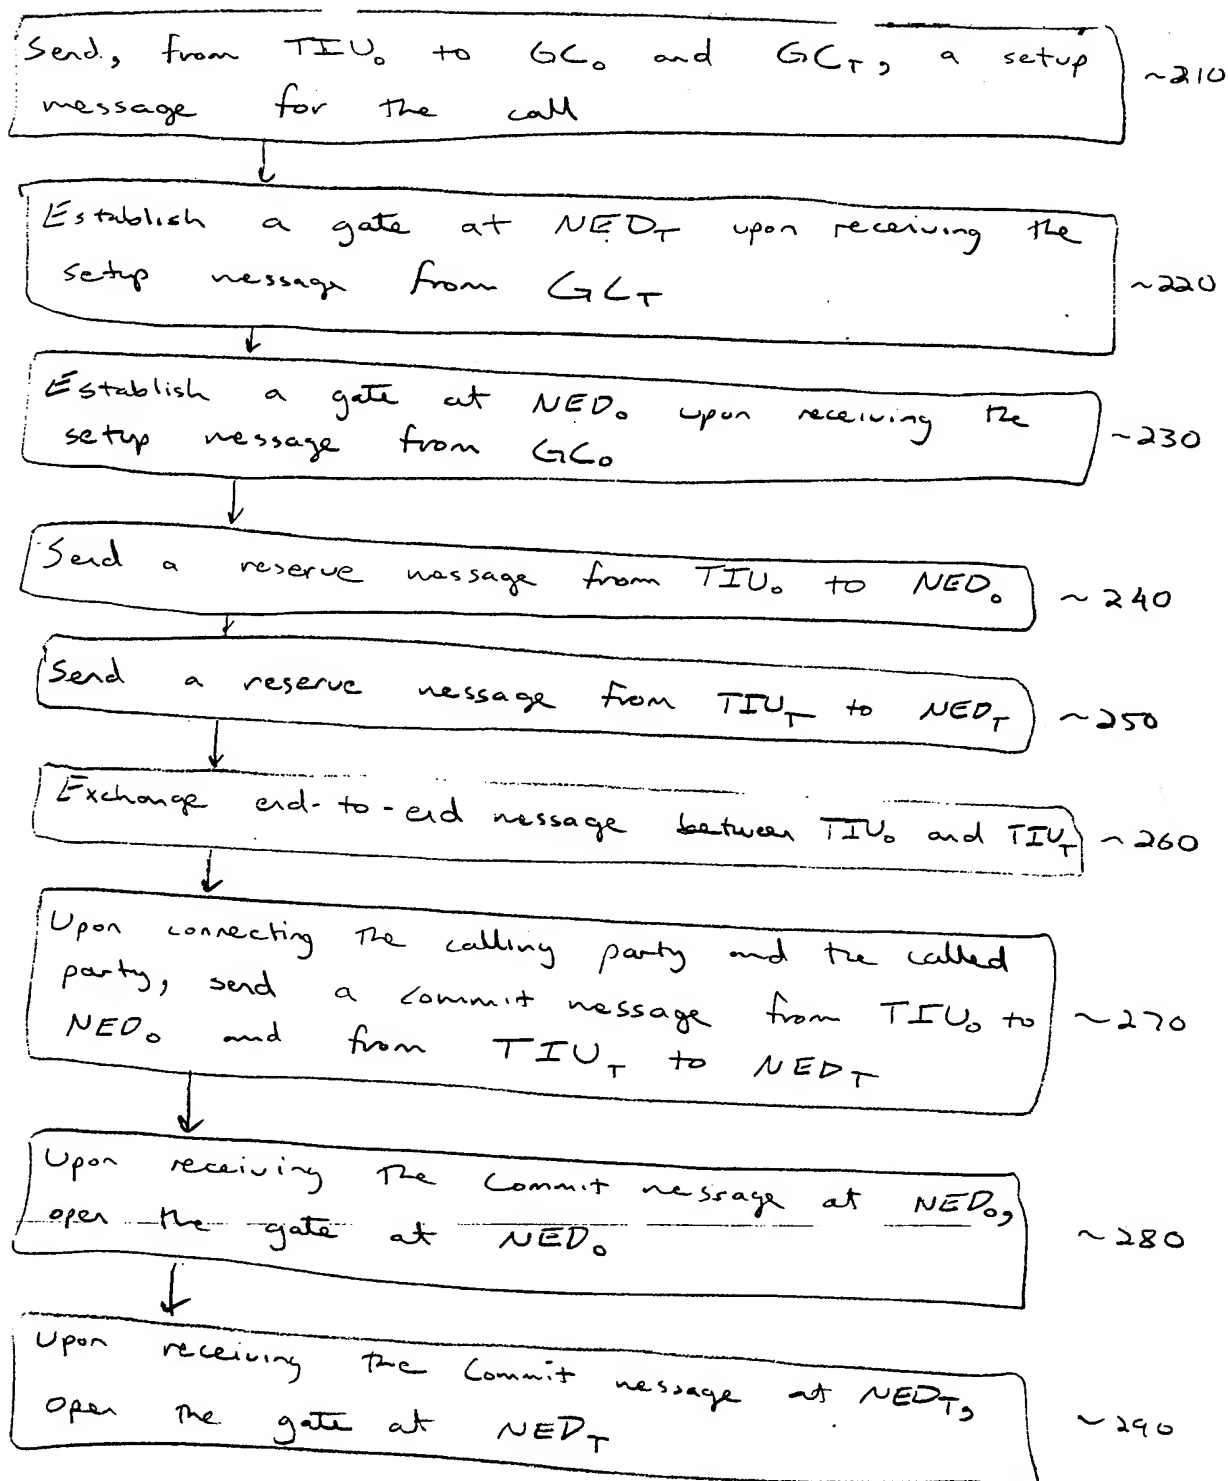 Send, from TIU₀ to GC₀ and GC_T, a setup ~210
message for the call
Establish a gate at NED_T upon receiving the
setup message from GC_T ~220
Establish a gate at NED₀ upon receiving the
setup message from GC₀ ~230
Send a reserve message from TIU₀ to NED₀ ~240
Send a reserve message from TIU_T to NED_T ~250
Exchange end-to-end message between TIU₀ and TIU_T ~260
Upon connecting the calling party and the called
party, send a commit message from TIU₀ to ~270
NED₀ and from TIU_T to NED_T
Upon receiving the commit message at NED₀,
open the gate at NED₀ ~280
Upon receiving the commit message at NED_T,
open the gate at NED_T ~290